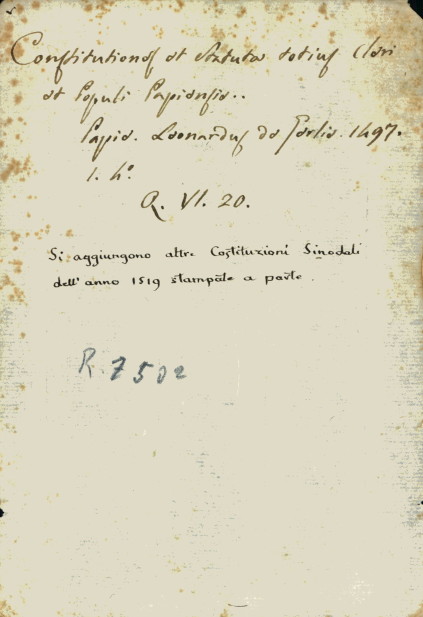 Constitutiones et Statuta totius Cleri
et Populi Papiensis..
Papie. Leonardus de Gerlis. 1497.
1. h°
Q. VI. 20.
Si aggiungono altre Costituzioni Sinodali
dell' anno 1519 stampate a parte.
R. 7502